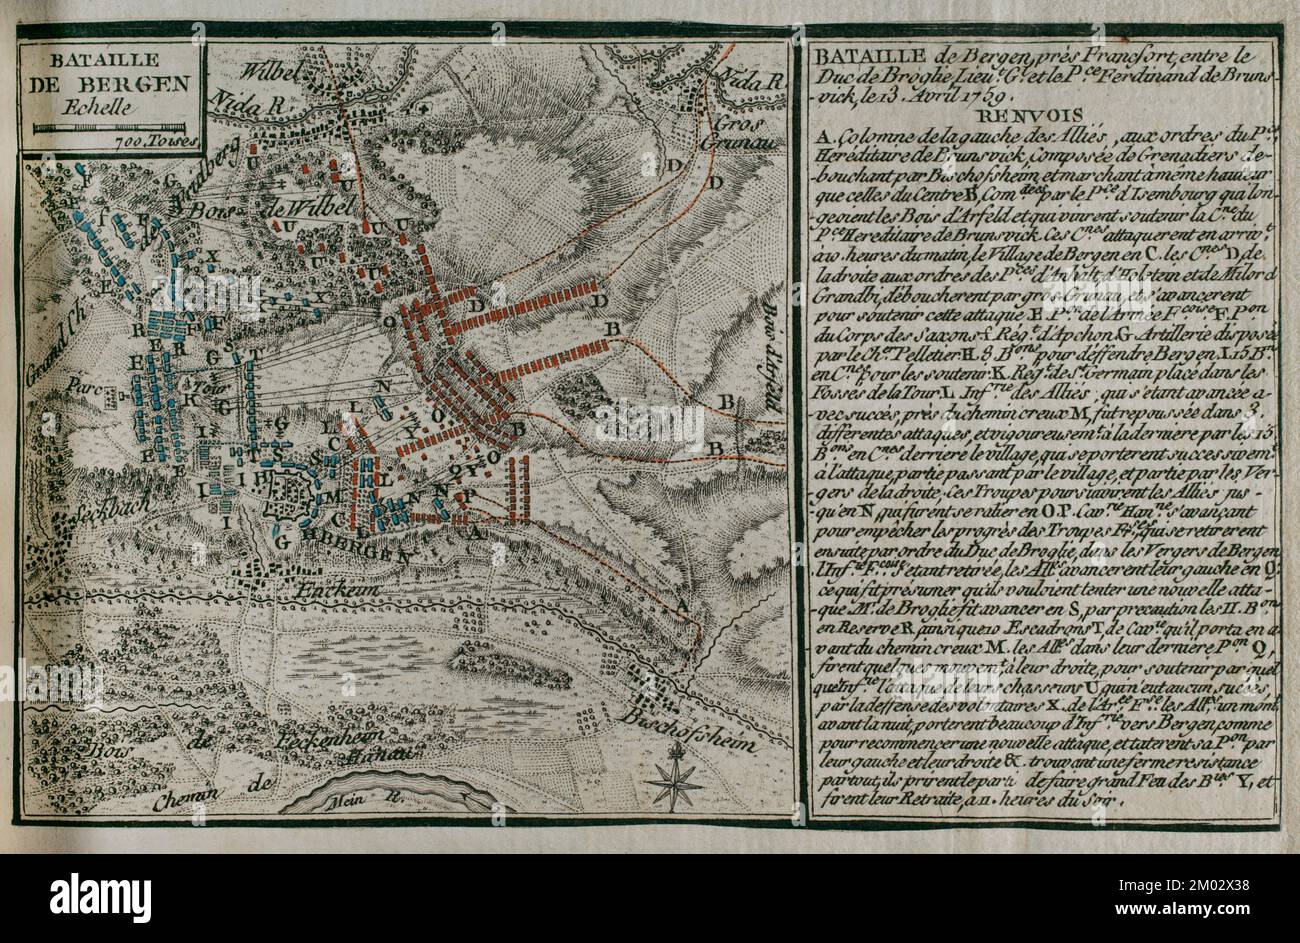 BATAILLE
DE BERGEN
Echelle
700. Toises
Wilbel
Nida R.
Nida R.
Gros
Grunau
Bois de Wilbel
Grand Ch.
Parc
Tour
Seckbach
BERGEN
Enckeim
Bois d'Arfeld
Bischofsheim
Bois de Feckenheim
Hanau
Chemin de
Mein R.
BATAILLE de Bergen, près Francfort, entre le
Duc de Broglie, Lieut. Gl. et le Pce Ferdinand de Bruns-
vick, le 13. Avril 1759.
RENVOIS
A. Colomne de la gauche des Alliés, aux ordres du Pce
Hereditaire de Brunsvick, Composée de Grenadiers de-
bouchant par Bischofsheim et marchant à même hauteur
que celles du Centre B, Comdées par le Pce d'Isembourg qui lon-
geoient les Bois d'Arfeld et qui vinrent soutenir la Cne du
Pce Hereditaire de Brunsvick. Ces Cnes attaquerent en arrivt
à 10. heures du matin, le Village de Bergen en C. les Cnes D, de
la droite aux ordres des Pces d'Anhalt, d'Holstein et de Milord
Grandbi, déboucherent par gros Grunau, et s'avancerent
pour soutenir cette attaque. E. Pon de l'Armée Fcoise F. Pon
du Corps des Saxons. f. Régt. d'Apchon. G. Artillerie disposée
par le Cher Pelletier. H. 8. Bons pour deffendre Bergen. I. 15. Bns
en Cnes pour les soutenir. K. Régt. de St. Germain placé dans les
Fosses de la Tour. L. Infrie des Alliés, qui s'etant avancée a-
vec succés, près du chemin creux M, fut repoussée dans 3.
differentes attaques, et vigoureusemt. à la derniere par les 13
Bons en Cnes derriere le village, qui se porterent successivemt.
à l'attaque, partie passant par le village, et partie par les Ver-
gers de la droite. Ces Troupes poursuivirent les Alliés jus-
qu'en N, qui furent se ralier en O. P. Cavrie Hanne s'avançant
pour empêcher les progrès des Troupes Fses, qui se retirerent
ensuite par ordre du Duc de Broglie, dans les Vergers de Bergen
l'Infie Fcoise etant retirée, les Allés avancerent leur gauche en Q:
ce qui fit présumer qu'ils vouloient tenter une nouvelle atta-
que. Mr. de Broglie fit avancer en S, par precaution les II. Bons
en Reserve R, ainsi que 10 Escadrons T, de Cavrie qu'il porta en a-
vant du chemin creux M. les Allés dans leur derniere Pon Q,
firent quelques mouvemt. à leur droite, pour soutenir par quel
que Infrie l'attaque de leurs chasseurs U qui n'eut aucun succès,
par la deffense des volontaires X. de l'Arée Fse les Allés, un momt.
avant la nuit, porterent beaucoup d'Infrie vers Bergen comme
pour recommencer une nouvelle attaque, et taterent sa Pon par
leur gauche et leur droite &. trouvant une ferme resistance
partout, ils prirent le parti de faire grand Feu des Bies Y, et
firent leur Retraite, à 11. heures du Soir.
alamy
Image ID: 2M02X38
www.alamy.com